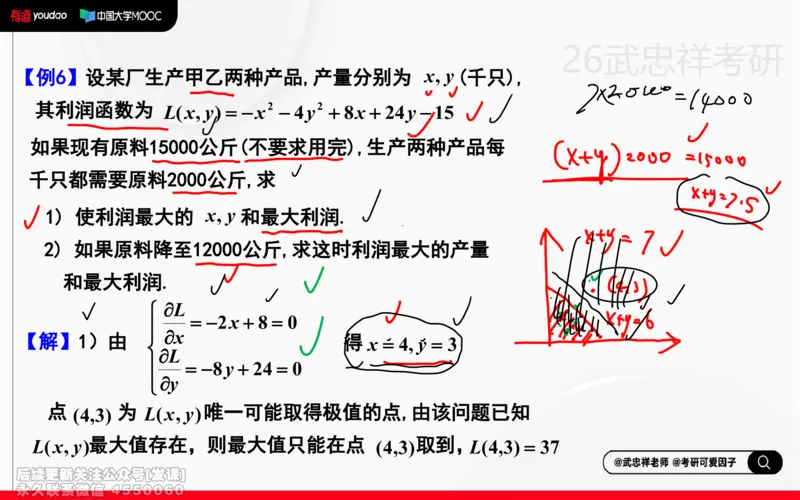 有道 youdao 中国大学MOOC
26武忠祥考研
【例6】设某厂生产甲乙两种产品,产量分别为 x, y (千只),
其利润函数为 L(x, y) = −x² − 4y² + 8x + 24y − 15
如果现有原料15000公斤(不要求用完),生产两种产品每
千只都需要原料2000公斤,求
1) 使利润最大的 x, y 和最大利润.
2) 如果原料降至12000公斤,求这时利润最大的产量
和最大利润.
7×2000=14000
(x+y)2000=15000
x+y=7.5
x+y=7
(4,3)
x+y=6
【解】1) 由 { ∂L/∂x = −2x + 8 = 0
∂L/∂y = −8y + 24 = 0
得 x = 4, y = 3
点 (4,3) 为 L(x, y) 唯一可能取得极值的点,由该问题已知
L(x, y)最大值存在，则最大值只能在点 (4,3)取到，L(4,3) = 37
@武忠祥老师 @考研可爱因子
后续更新关注公众号[发课]
永久联系微信 4550060